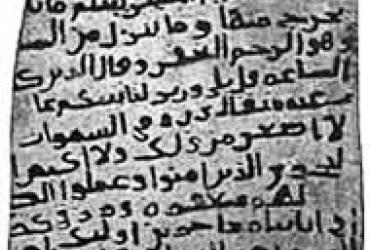 يعلم ما
يخرج منها وما ينزل من السـ
وهو الرحيم الغفور وقال الذين كـ
الساعه قل بلى وربى لتاتينكم عا
عنه مثقال ذره فى السموات
لا اصغر من ذلك ولا اكبر ا
ليجزى الذين امنوا وعملوا الصـ
لهم مغفره ورزق كر
اياتنا معجزين اولئك